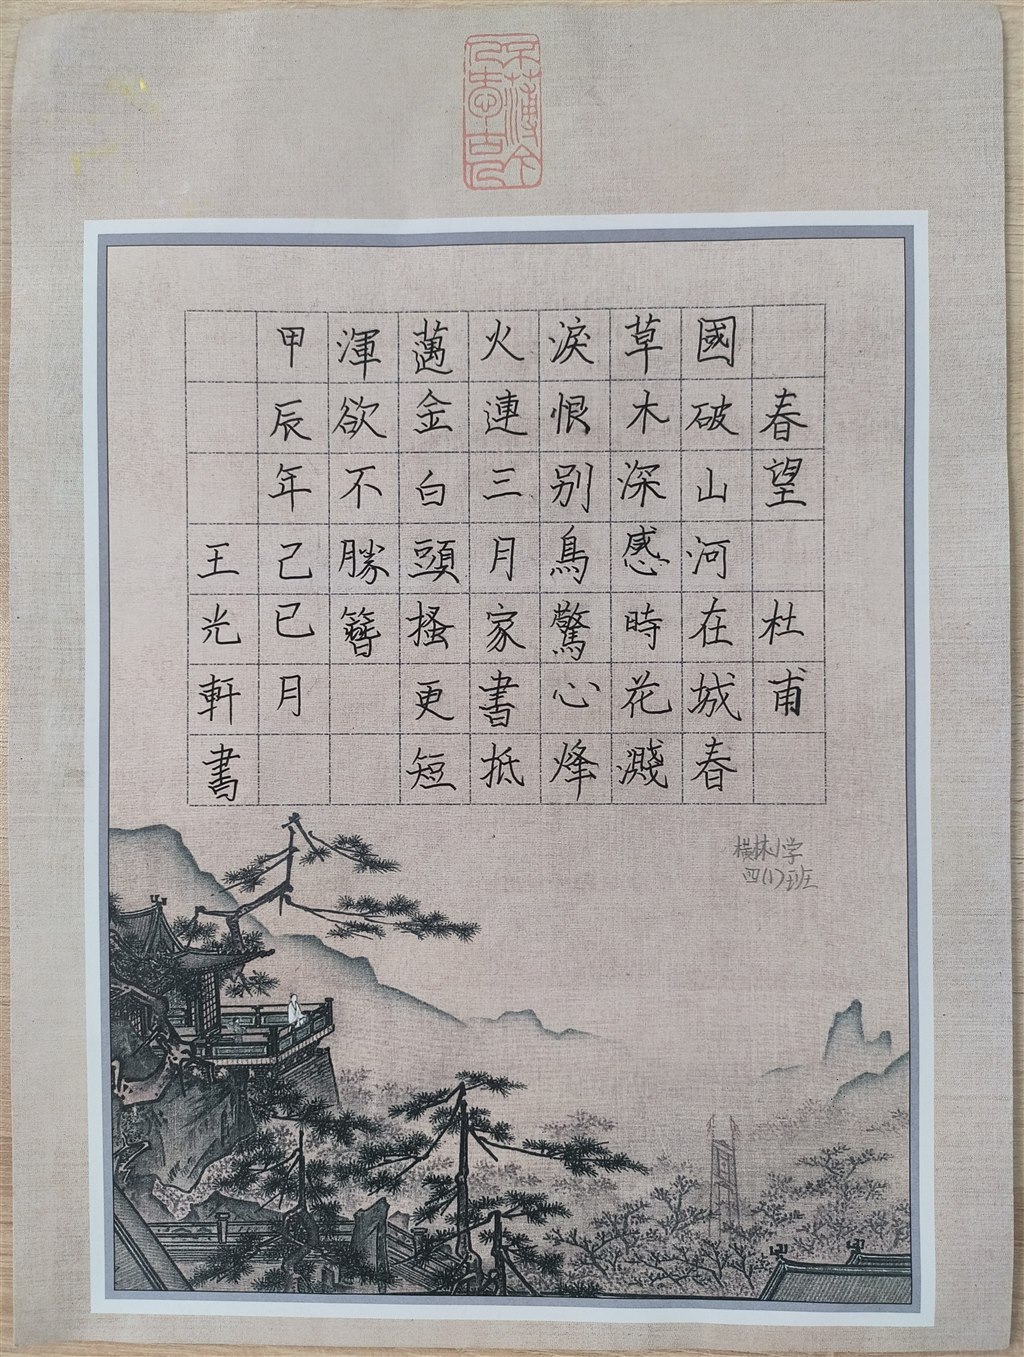 春望 杜甫
國破山河在城春
草木深感時花濺
淚恨别鳥驚心烽
火連三月家書抵
萬金白頭搔更短
渾欲不勝簪
甲辰年己巳月
王光軒書
橫林小学
四(1)班
不薄今人愛古人